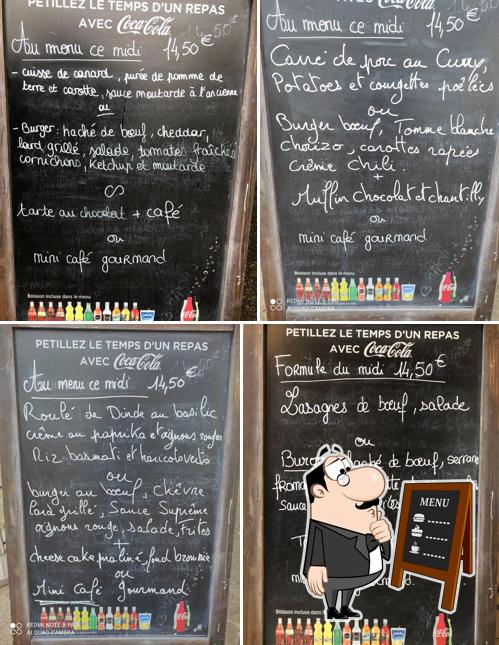 PETILLEZ LE TEMPS D'UN REPAS
AVEC Coca-Cola
Au menu ce midi 14,50€
- cuisse de canard, purée de pomme de
terre et carotte, sauce moutarde à l'ancienne
ou
- Burger: haché de bœuf, cheddar,
lard grillé, salade, tomates fraîches
cornichons, Ketchup et moutarde
tarte au chocolat + café
ou
mini café gourmand
Boisson incluse dans le menu
Au menu ce midi 14,50€
Carré de porc au Curry,
Potatoes et courgettes poêlées
ou
Burger bœuf, Tomme blanche
chorizo, carottes rapées
crème chili.
+
Muffin chocolat et chantilly
ou
mini café gourmand
Boisson incluse dans le menu
REDMI NOTE 9 PRO
AI QUAD CAMERA
PETILLEZ LE TEMPS D'UN REPAS
AVEC Coca-Cola
Au menu ce midi 14,50€
Roulé de Dinde au basilic
crème au paprika et oignons rouges
Riz basmati et haricots verts
ou
burger au bœuf, chèvre
lard grillé, Sauce Suprême
oignons rouge, salade, frites
+
cheese cake praliné, fond brownie
ou
Mini Café Gourmand
REDMI NOTE 9 PRO
AI QUAD CAMERA
PETILLEZ LE TEMPS D'UN REPAS
AVEC Coca-Cola
Formule du midi 14,50€
Lasagnes de bœuf, salade
ou
de bœuf, serrano
Sauce
MENU
Boisson incluse dans le menu